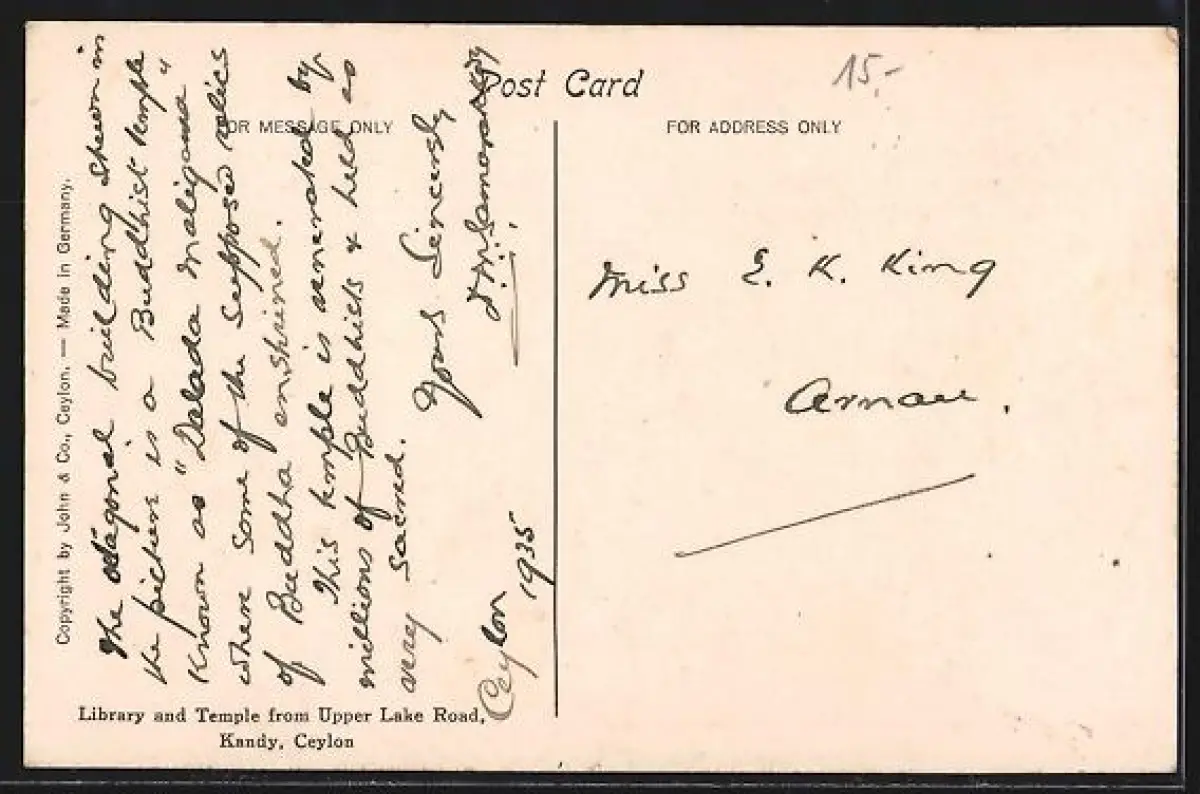 Post Card
15,-
FOR MESSAGE ONLY
FOR ADDRESS ONLY
Copyright by John & Co., Ceylon. — Made in Germany.
The octagonal building shewn in
the picture is a Buddhist temple
known as "Dalada Maligawa"
where some of the supposed relics
of Buddha enshrined.
This temple is venerated by
millions of Buddhists & held as
very sacred.
Yours Sincerely
Ceylon
1935
Miss E. K. King
Arnau.
Library and Temple from Upper Lake Road,
Kandy, Ceylon